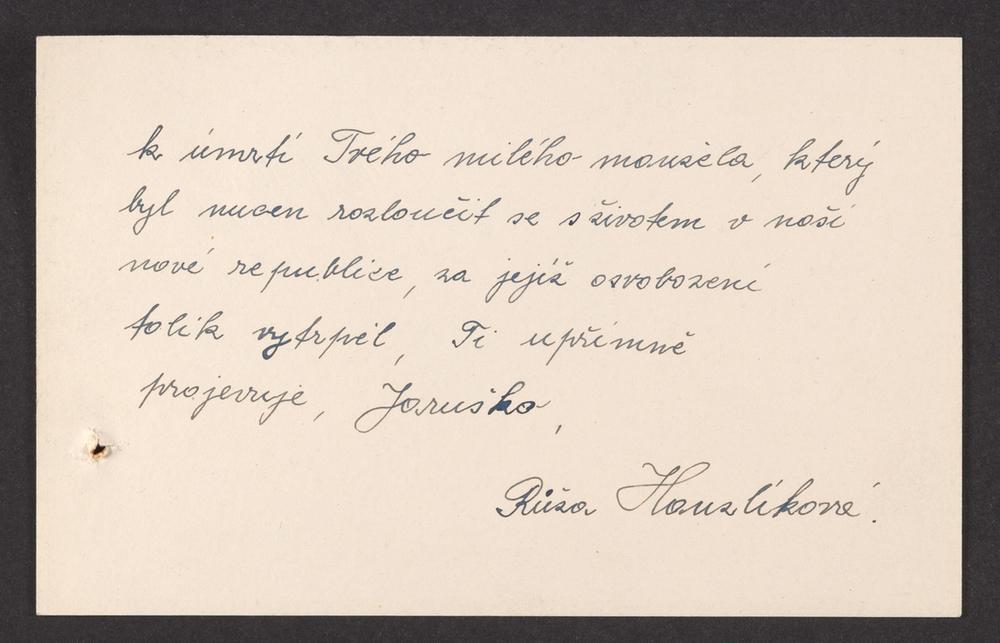 k úmrtí Tvého milého manžela, který
byl nucen rozloučit se s životem v naší
nové republice, za jejíž osvobození
tolik vytrpěl, Ti upřímně
projevuje, Jaruško,
Růža Hanzlíková.